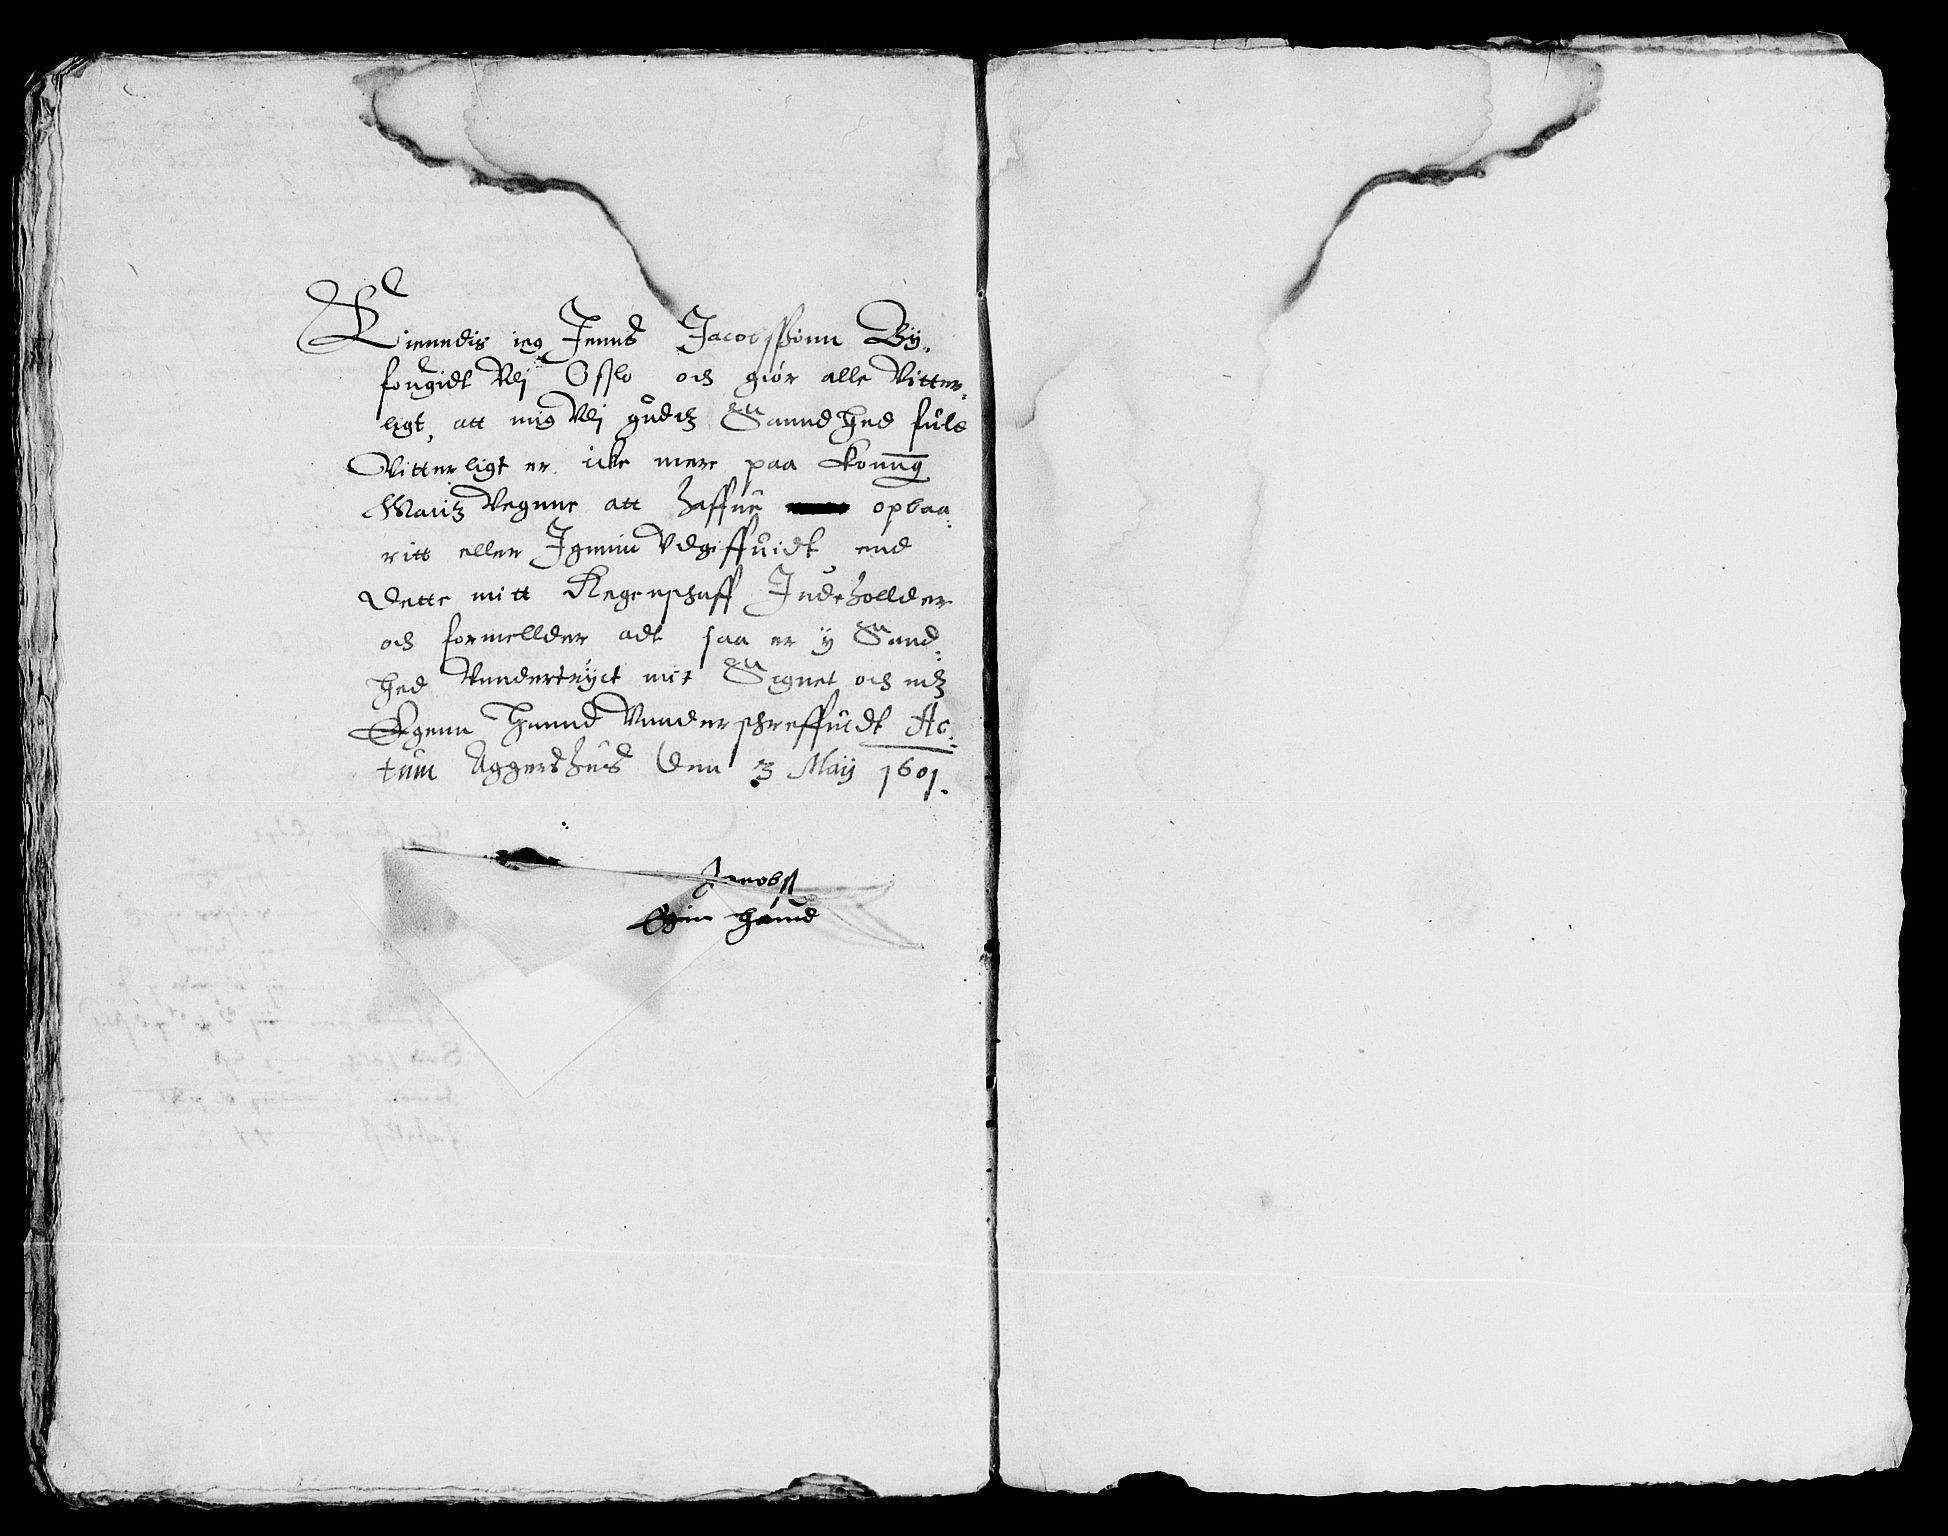 Kiendis ieg Jenns Jacobsshønn By,
fougidt Vdj Osslo och giør alle Vitter,
ligt, att mig Vdj gudtz Sanndhed fuld
Vitterligt er icke mere paa Konnng
Maitz Vegnne att haffue opbaa:
ritt eller Igmin Vdgiffuidt end
Dette mitt Regenschaff Indeholder
och formellder adt saa er y Sand:
hed Vnndertryct mit Signet och mdtz
Egenn Hannd Vnnderschreffuidt Ac:
tum Aggershuus Den 3 Maij 1601.
Egin hannd